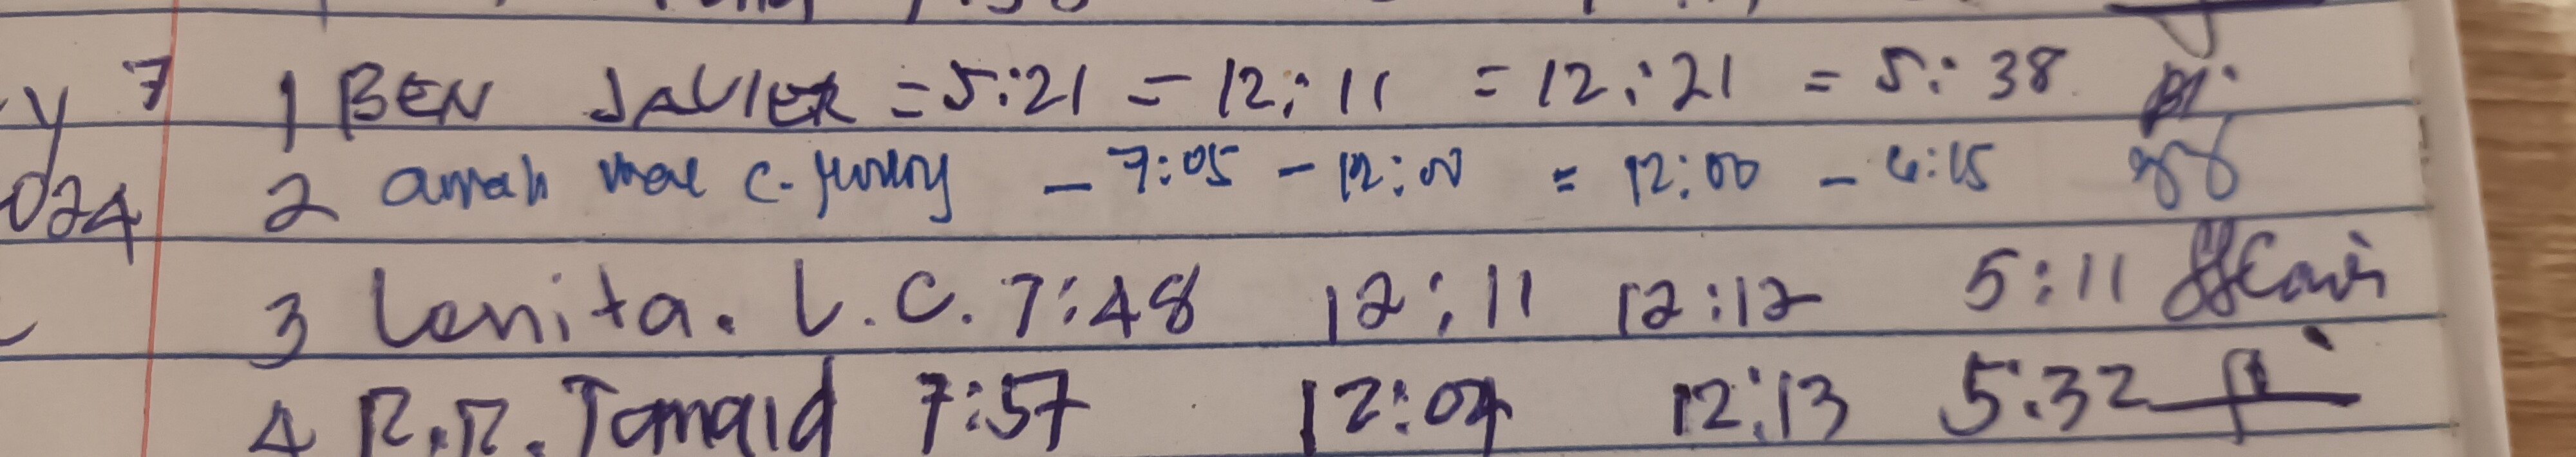 y 7 1 BEN JAVIER = 5:21 = 12:11 = 12:21 = 5:38
024 2 amah mae c. - 7:05 - 12:00 = 12:00 - 6:15
3 Lenita. L.C. 7:48 12:11 12:12 5:11
4 R.R. Tamaid 7:57 12:04 12:13 5:32